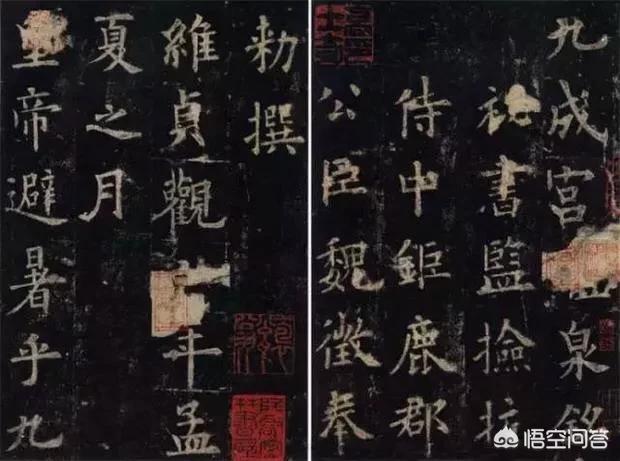 九成宫泉銘
祕書監撿挍
侍中鉅鹿郡
公臣魏徵奉
勑撰
維貞觀年孟
夏之月
皇帝避暑乎九
悟空问答